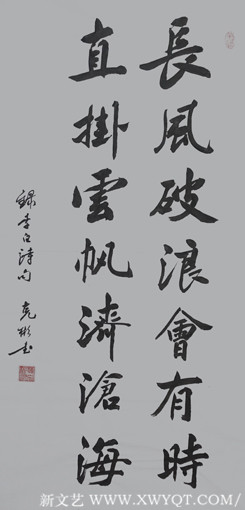 長風破浪會有時
直掛雲帆濟滄海
録李白詩句 克彬书
新文艺 www.XWYQT.COM/